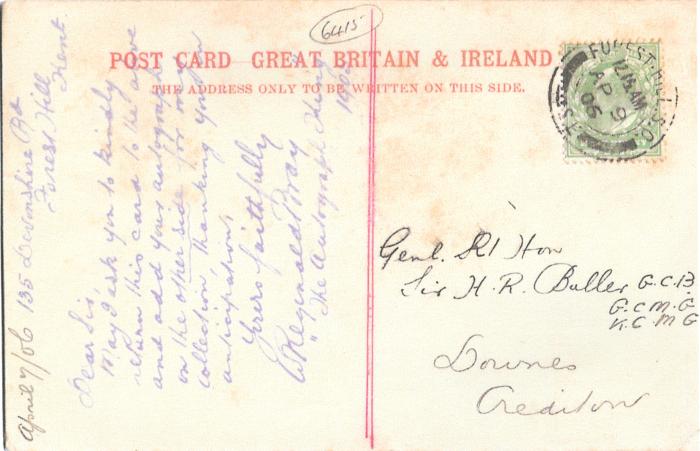 6415
POST CARD GREAT BRITAIN & IRELAND
THE ADDRESS ONLY TO BE WRITTEN ON THIS SIDE.
FOREST-HILL S.O.
12.15 AM
AP 9
06
S.E.
April 7/06 135 Devonshire Rd
Forest Hill
Kent.
Dear Sir,
May I ask you to kindly
return this card to the above
and add your autograph
on the other side for my
collection, thanking you in
anticipation,
Yours faithfully
W Reginald Bray
"The Autograph King"
Genl. Rt Hon
Sir H. R. Buller G.C.B.
G.C.M.G
K.C.M.G
Downes
Crediton